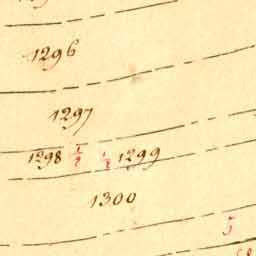 1296
1297
1298 1/2 1/2 1299
1300
5